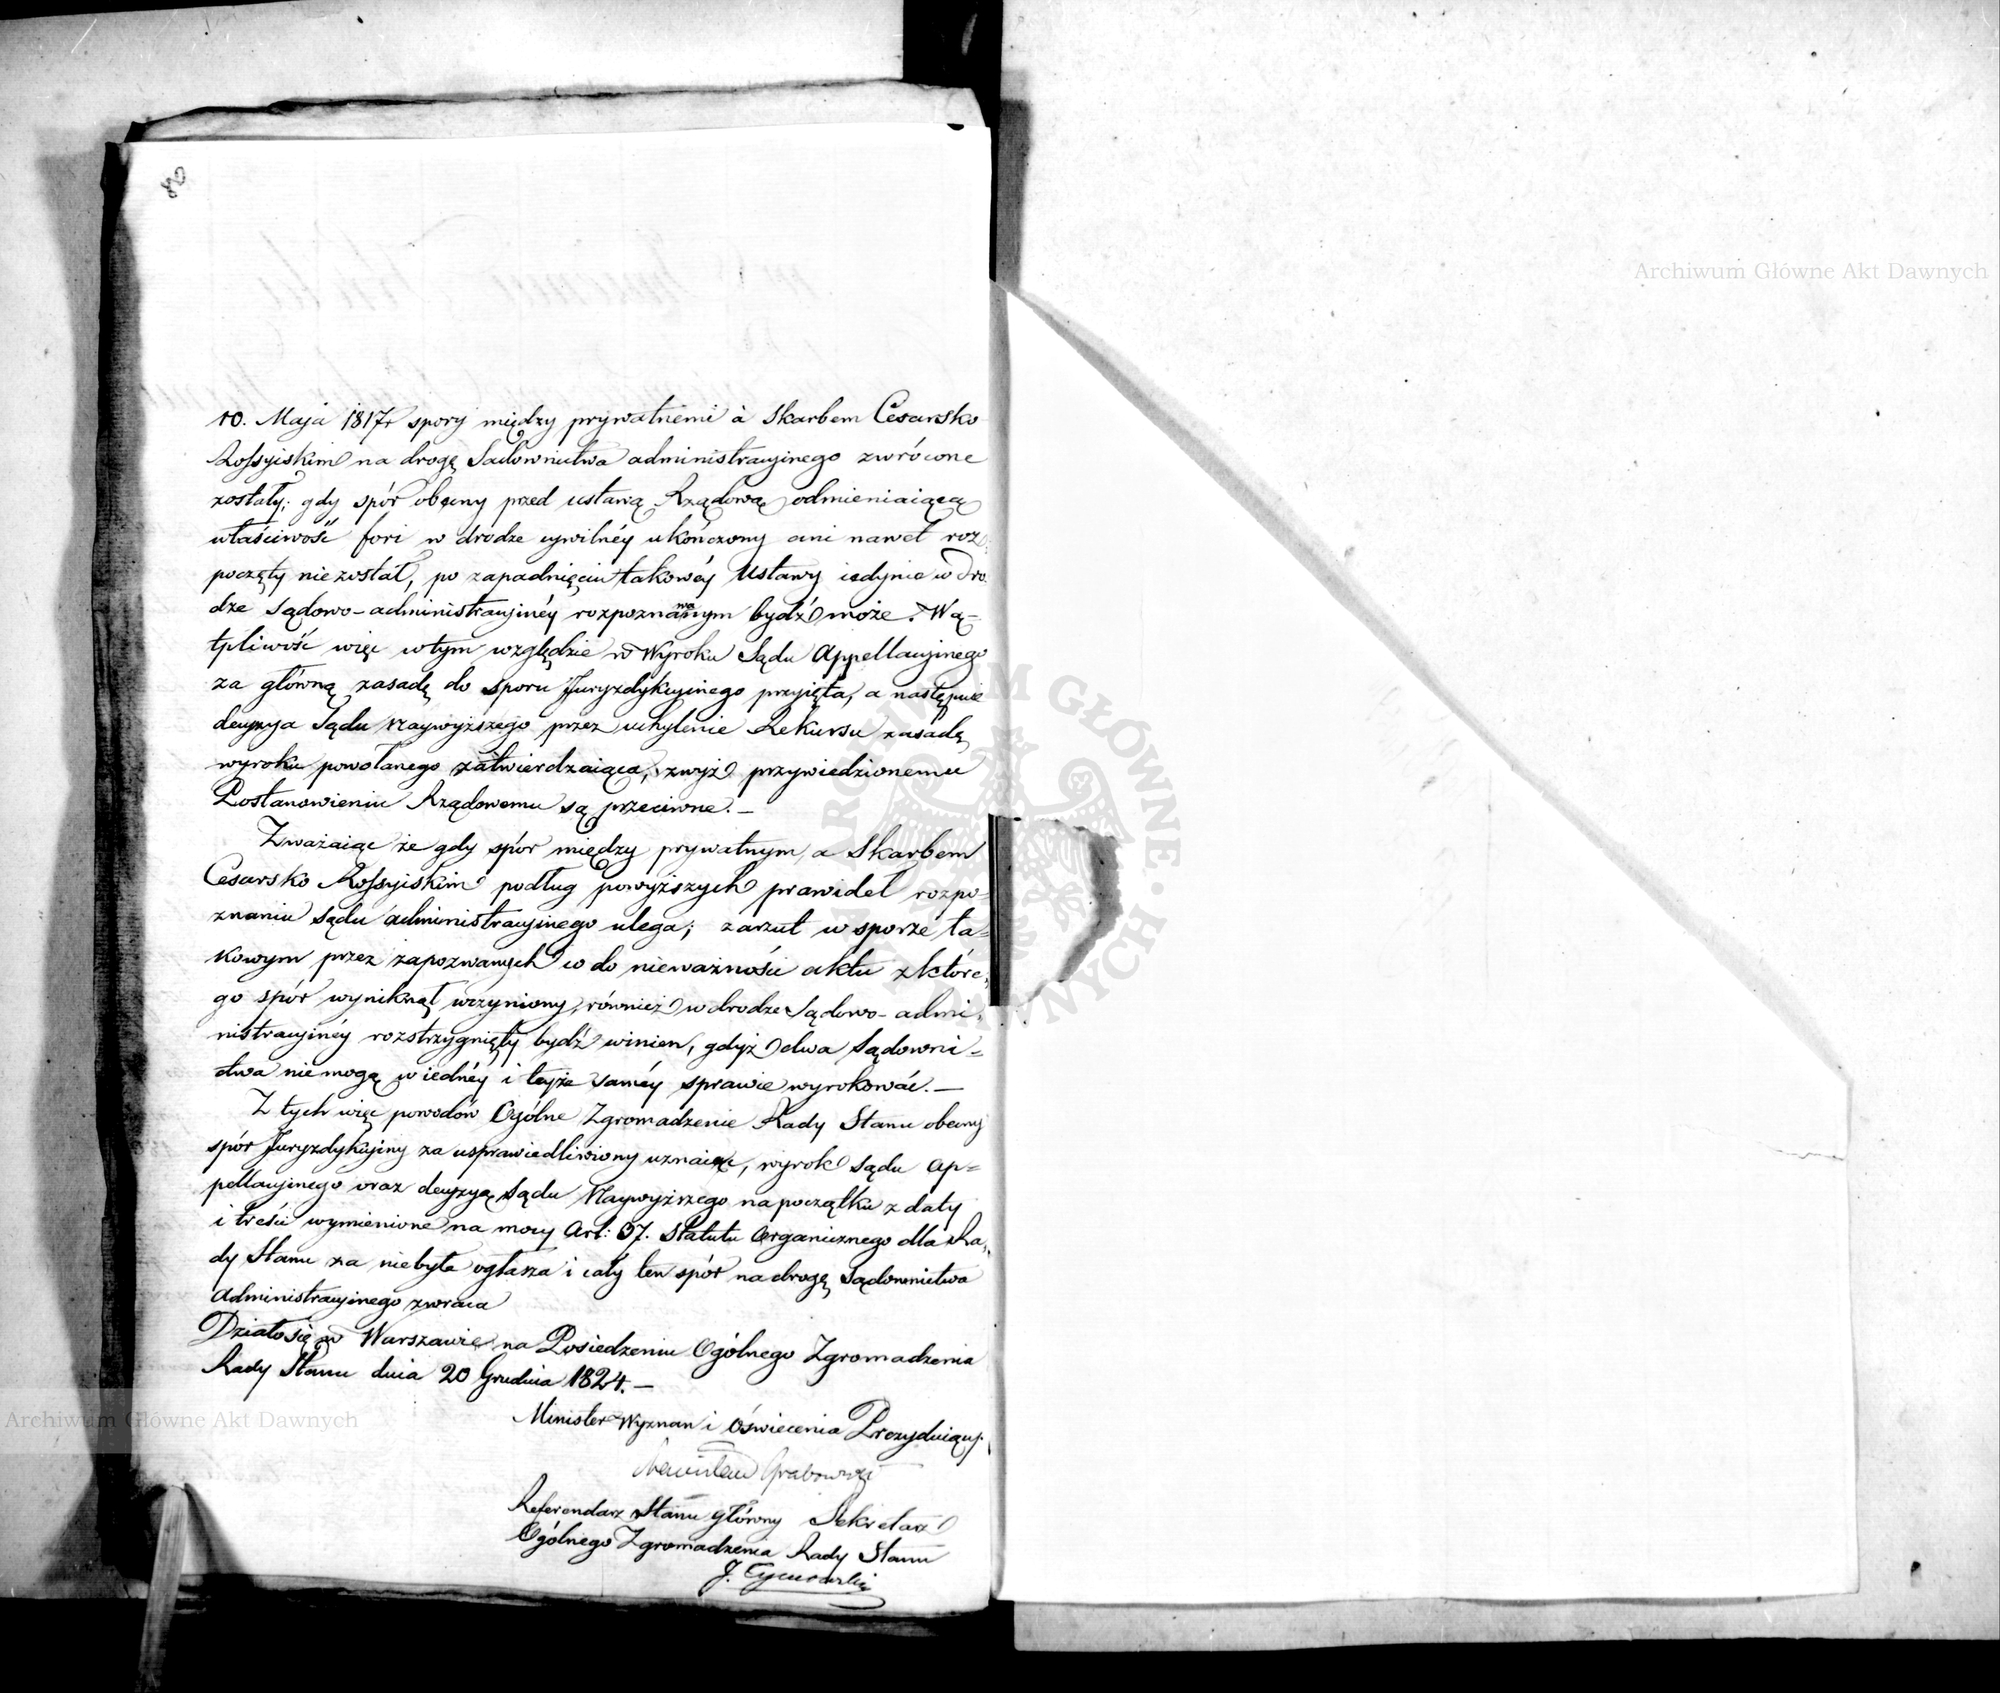 80
10. Maja 1817r spory między prywatnemi à Skarbem Cesarsko
Rossyiskim na drogę Sądownictwa administracyinego zwrócone
zostały; gdy spór obecny przed ustawą Rządową odmieniaiącą
właściwość fori w drodze cywilnéy ukończony ani nawet roz=
poczęty nie został, po zapadnięciu takowéy Ustawy iedynie w dro=
dze Sądowo-administracyinéy rozpoznawanym bydź może. Wą=
tpliwość więc w tym względzie w Wyroku Sądu Appellacyinego
za główną zasadę do sporu Juryzdykcyinego przyięta, a następnie
decyzya Sądu Naywyższego przez uchylenie Rekursu zasadę
wyroku powołanego zatwierdzaiąca, zwyż przywiedzionemu
Postanowieniu Rządowemu są przeciwne. —
Zważaiąc że gdy spór między prywatnym, a Skarbem
Cesarsko Rossyiskim podług powyższych prawideł rozpo=
znaniu Sądu administracyinego ulega; zarzut w sporze ta=
kowym przez zapozwanych co do nieważności aktu z które=
go spór wyniknął uczyniony, również w drodze Sądowo-admi=
nistracyinéy rozstrzygnięty bydź winien, gdyż dwa Sądowni=
ctwa nie mogą w iednéy i teyże saméy sprawie wyrokować. —
Z tych więc powodów Ogólne Zgromadzenie Rady Stanu obecny
spór Juryzdykcyiny za usprawiedliwiony uznaiąc, wyrok Sądu Ap=
pellacyinego oraz decyzyą Sądu Naywyższego na początku z daty
i treści wymienione na mocy Art: 37. Statutu Organicznego dla Ra=
dy Stanu za niebyłe ogłasza i cały ten spór na drogę Sądownictwa
Administracyinego zwraca
Działo się w Warszawie na Posiedzeniu Ogólnego Zgromadzenia
Rady Stanu dnia 20 Grudnia 1824. —
Minister Wyznan i Oświecenia Prezyduiący
Stanisław Grabowski
Referendarz Stanu główny Sekretarz
Ogólnego Zgromadzenia Rady Stanu
J.
Archiwum Główne Akt Dawnych
Archiwum Główne Akt Dawnych
ARCHIWUM GŁÓWNE AKT DAWNYCH